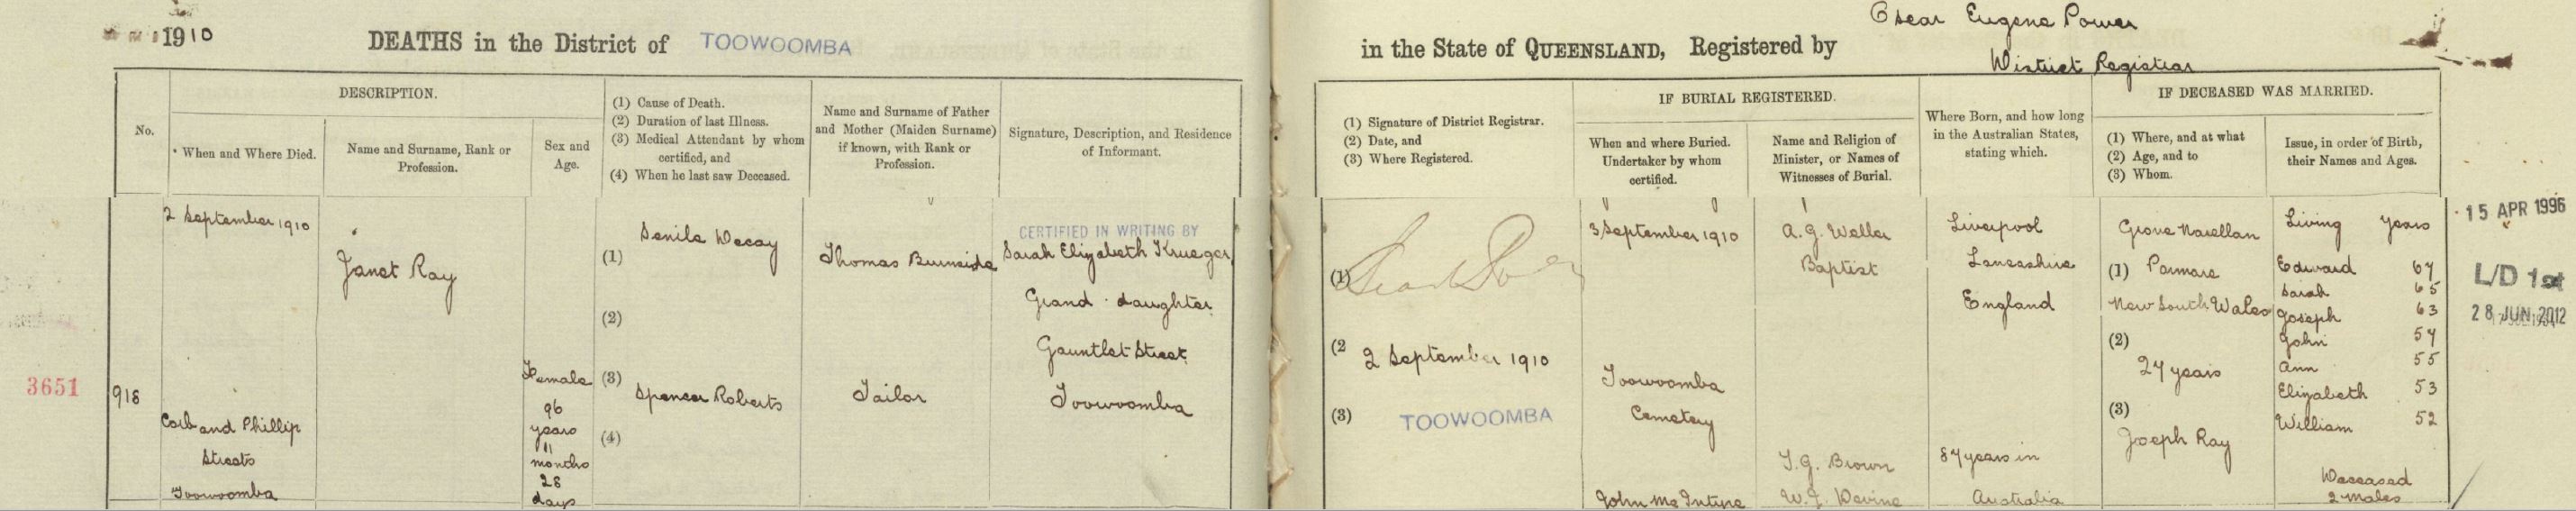 1910
DEATHS in the District of TOOWOOMBA
in the State of QUEENSLAND, Registered by
Oscar Eugene Power
District Registrar
No.
DESCRIPTION.
When and Where Died.
Name and Surname, Rank or
Profession.
Sex and
Age.
(1) Cause of Death.
(2) Duration of last Illness.
(3) Medical Attendant by whom
certified, and
(4) When he last saw Deceased.
Name and Surname of Father
and Mother (Maiden Surname)
if known, with Rank or
Profession.
Signature, Description, and Residence
of Informant.
(1) Signature of District Registrar.
(2) Date, and
(3) Where Registered.
IF BURIAL REGISTERED.
When and where Buried.
Undertaker by whom
certified.
Name and Religion of
Minister, or Names of
Witnesses of Burial.
Where Born, and how long
in the Australian States,
stating which.
IF DECEASED WAS MARRIED.
(1) Where, and at what
(2) Age, and to
(3) Whom.
Issue, in order of Birth,
their Names and Ages.
3651
918
2 September 1910
Corb and Phillip
Streets
Toowoomba
Janet Ray
Female
96
years
11
months
28
days
Senile Decay
(1)
(2)
(3)
Spencer Roberts
(4)
Thomas Burnside
Tailor
CERTIFIED IN WRITING BY
Sarah Elizabeth Krueger
Grand daughter
Gauntlet Street
Toowoomba
(1)
(2
2 September 1910
(3)
TOOWOOMBA
3 September 1910
Toowoomba
Cemetery
John McIntyre
A.G. Weller
Baptist
T.G. Brown
W.J. Devine
Liverpool
Lancashire
England
87 years in
Australia
Grove Narellan
(1) Parmare
New South Wales
(2)
27 years
(3)
Joseph Ray
Living years
Edward 67
Sarah 65
Joseph 63
John 57
Ann 55
Elizabeth 53
William 52
Deceased
2 males
15 APR 1996
L/D 1st
28 JUN 2012